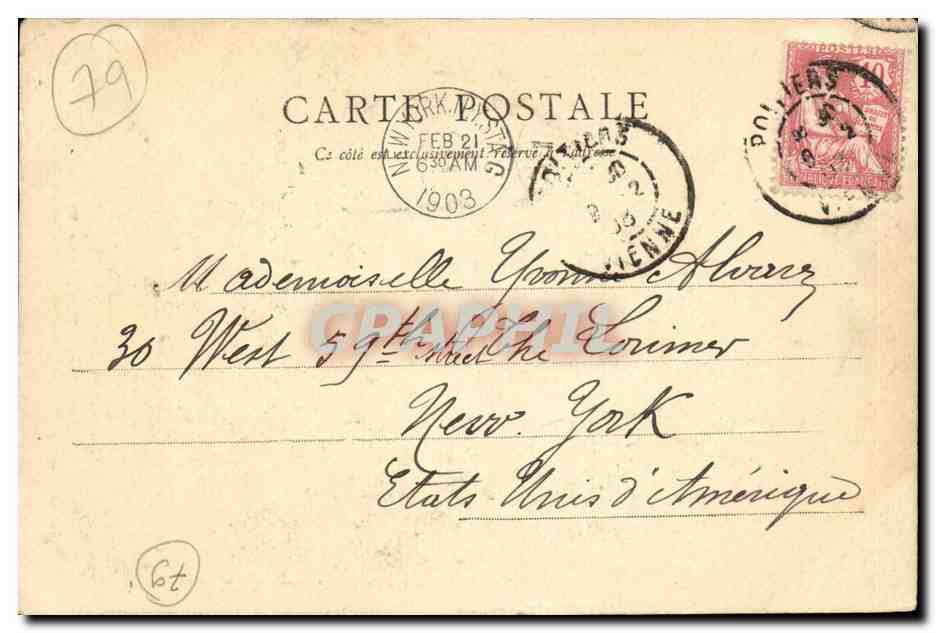 79
CARTE POSTALE
Ce côté est exclusivement réservé à l'adresse
NEW YORK, N.Y. STA G
FEB 21
6 30 AM
1903
POITIERS
VIENNE
POSTES
10
RÉPUBLIQUE FRANÇAISE
POITIERS
Mademoiselle Yvonne Alvarez
30 West 59th street The Lorimer
CPAPHIL
New. York
Etats Unis d'Amérique
79